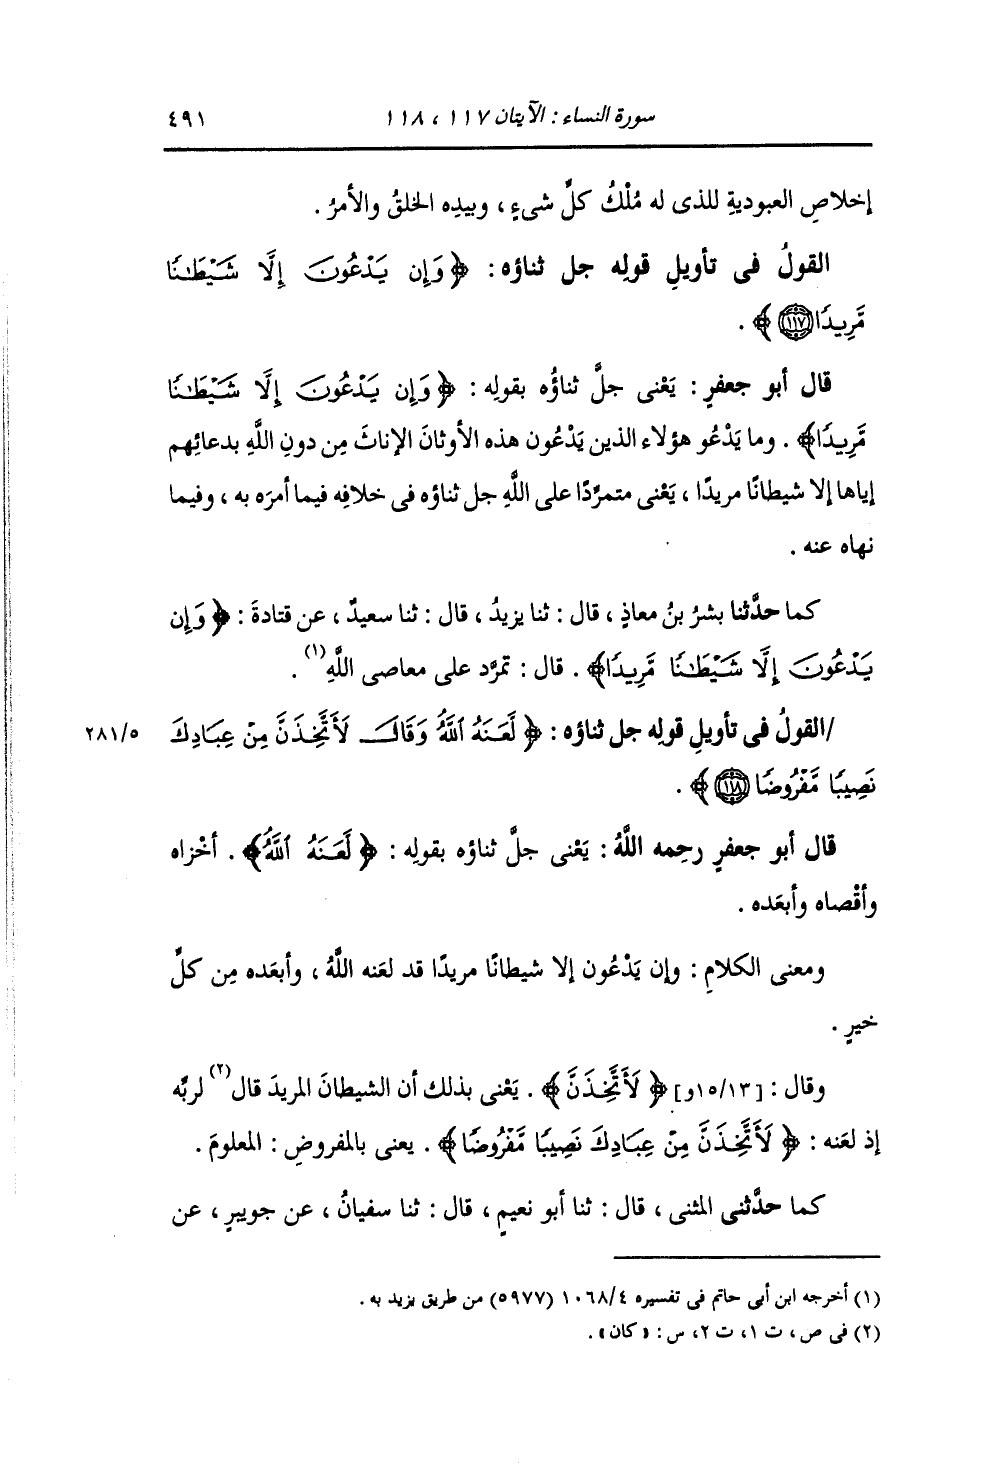 سورة النساء : الآيتان ١١٧ ، ١١٨ ٤٩١
إخلاصِ العبوديةِ للذى له مُلْكُ كلِّ شىءٍ ، وبيدِه الخلقُ والأمرُ .
القولُ فى تأويلِ قولِه جل ثناؤه : ﴿ وَإِن يَدْعُونَ إِلَّا شَيْطَٰنًا
مَّرِيدًا ١١٧ ﴾ .
قال أبو جعفرٍ : يَعْنى جلَّ ثناؤُه بقولِه : ﴿ وَإِن يَدْعُونَ إِلَّا شَيْطَٰنًا
مَّرِيدًا﴾ . وما يَدْعُو هؤلاء الذين يَدْعُون هذه الأوثانَ الإناثَ مِن دونِ اللَّهِ بدعائِهم
إياها إلا شيطانًا مريدًا ، يَعْنى متمرِّدًا على اللَّهِ جل ثناؤه فى خلافِه فيما أمرَه به ، وفيما
نهاه عنه .
كما حدَّثنا بشرُ بنُ معاذٍ ، قال : ثنا يزيدُ ، قال : ثنا سعيدٌ ، عن قتادةَ : ﴿ وَإِن
يَدْعُونَ إِلَّا شَيْطَٰنًا مَّرِيدًا﴾ . قال : تمرَّد على معاصى اللَّهِ(١) .
/القولُ فى تأويلِ قولِه جل ثناؤه : ﴿ لَّعَنَهُ ٱللَّهُ وَقَالَ لَأَتَّخِذَنَّ مِنْ عِبَادِكَ ٢٨١/٥
نَصِيبًا مَّفْرُوضًا ١١٨ ﴾ .
قال أبو جعفرٍ رحِمه اللَّهُ : يَعْنى جلَّ ثناؤه بقولِه : ﴿ لَّعَنَهُ ٱللَّهُ﴾ . أخْزاه
وأقْصاه وأبعَده .
ومعنى الكلامِ : وإن يَدْعُون إلا شيطانًا مريدًا قد لعَنه اللَّهُ ، وأبعَده مِن كلِّ
خيرٍ .
وقال : [١٥/١٣و] ﴿ لَأَتَّخِذَنَّ ﴾ . يَعْنى بذلك أن الشيطانَ المريدَ قال(٢) لربِّه
إذ لعَنه : ﴿ لَأَتَّخِذَنَّ مِنْ عِبَادِكَ نَصِيبًا مَّفْرُوضًا ﴾ . يعنى بالمفروضِ : المعلومَ .
كما حدَّثنى المثنى ، قال : ثنا أبو نعيمٍ ، قال : ثنا سفيانُ ، عن جويبرٍ ، عن
(١) أخرجه ابن أبى حاتم فى تفسيره ١٠٦٨/٤ (٥٩٧٧) من طريق يزيد به .
(٢) فى ص ، ت ١، ت ٢، س : « كان » .